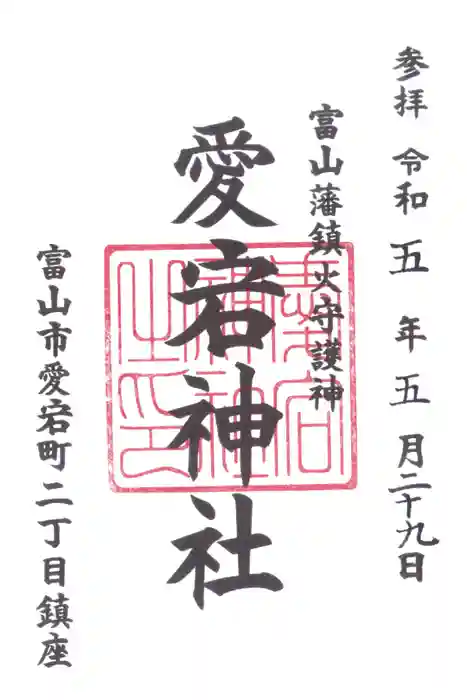 参拝 令和五年五月二十九日
富山藩鎮火守護神
愛宕神社
富山市愛宕町二丁目鎮座
愛宕神社之印